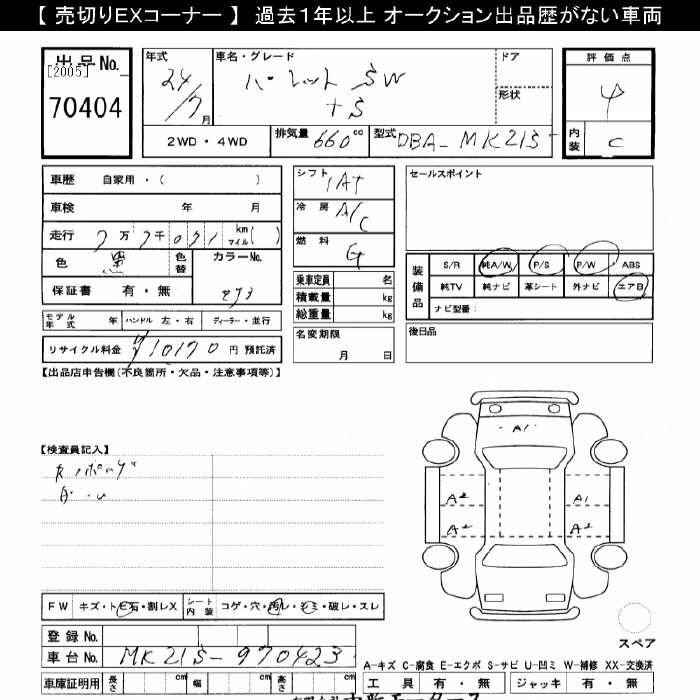 【 売切りEXコーナー 】 過去１年以上 オークション出品歴がない車両
出品No.
[2005]
70404
年式
24/7月
車名・グレード
パレット SW
TS
ドア
形状
評価点
4
内装
C
2WD・4WD
排気量 660 cc
型式 DBA-MK21S
車歴 自家用・( )
車検 年 月
走行 7万7千071 km マイル( )
色 黒 色替 カラーNo. ZJ3
保証書 有・無
モデル年式 年 ハンドル 左・右 ディーラー・並行
リサイクル料金 ¥10170円 預託済
シフト IAT
冷房 A/C
燃料 G
乗車定員 名
積載量 kg
総重量 kg
名変期限
月 日
セールスポイント
装備品
S/R 純A/W P/S P/W ABS
純TV 純ナビ 革シート 外ナビ エアB
ナビ型番:
後日品
【出品店申告欄(不良箇所・欠品・注意事項等)】
【検査員記入】
A1
A2 A1
A2 A2
スペア
FW キズ・トビ石・割レX シート内装 コゲ・穴・汚レ・シミ・破レ・スレ
登録No.
車台No. MK21S-970423
A-キズ C-腐食 E-エクボ S-サビ U-凹ミ W-補修 XX-交換済
車庫証明用 長さ cm 幅 cm 高さ cm
工具 有・無 ジャッキ 有・無